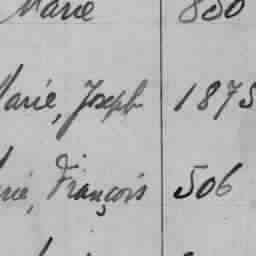 Marie 850
Marie, Joseph 1875
Marie, François 506